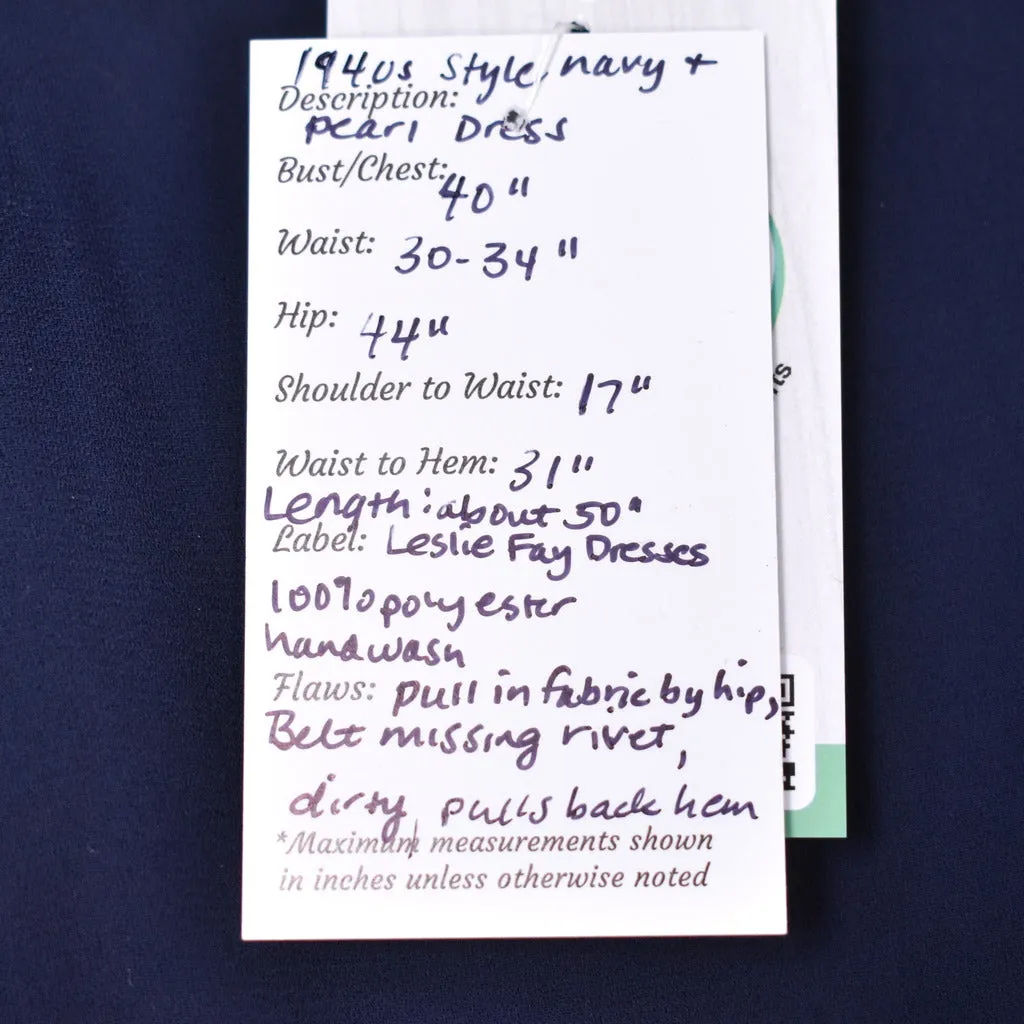 1940s Style navy +
Description:
pearl Dress
Bust/Chest: 40"
Waist: 30-34"
Hip: 44"
Shoulder to Waist: 17"
Waist to Hem: 31"
Length: about 50"
Label: Leslie Fay Dresses
100% polyester
handwash
Flaws: pull in fabric by hip,
Belt missing rivet,
dirty, pulls back hem
*Maximum measurements shown
in inches unless otherwise noted